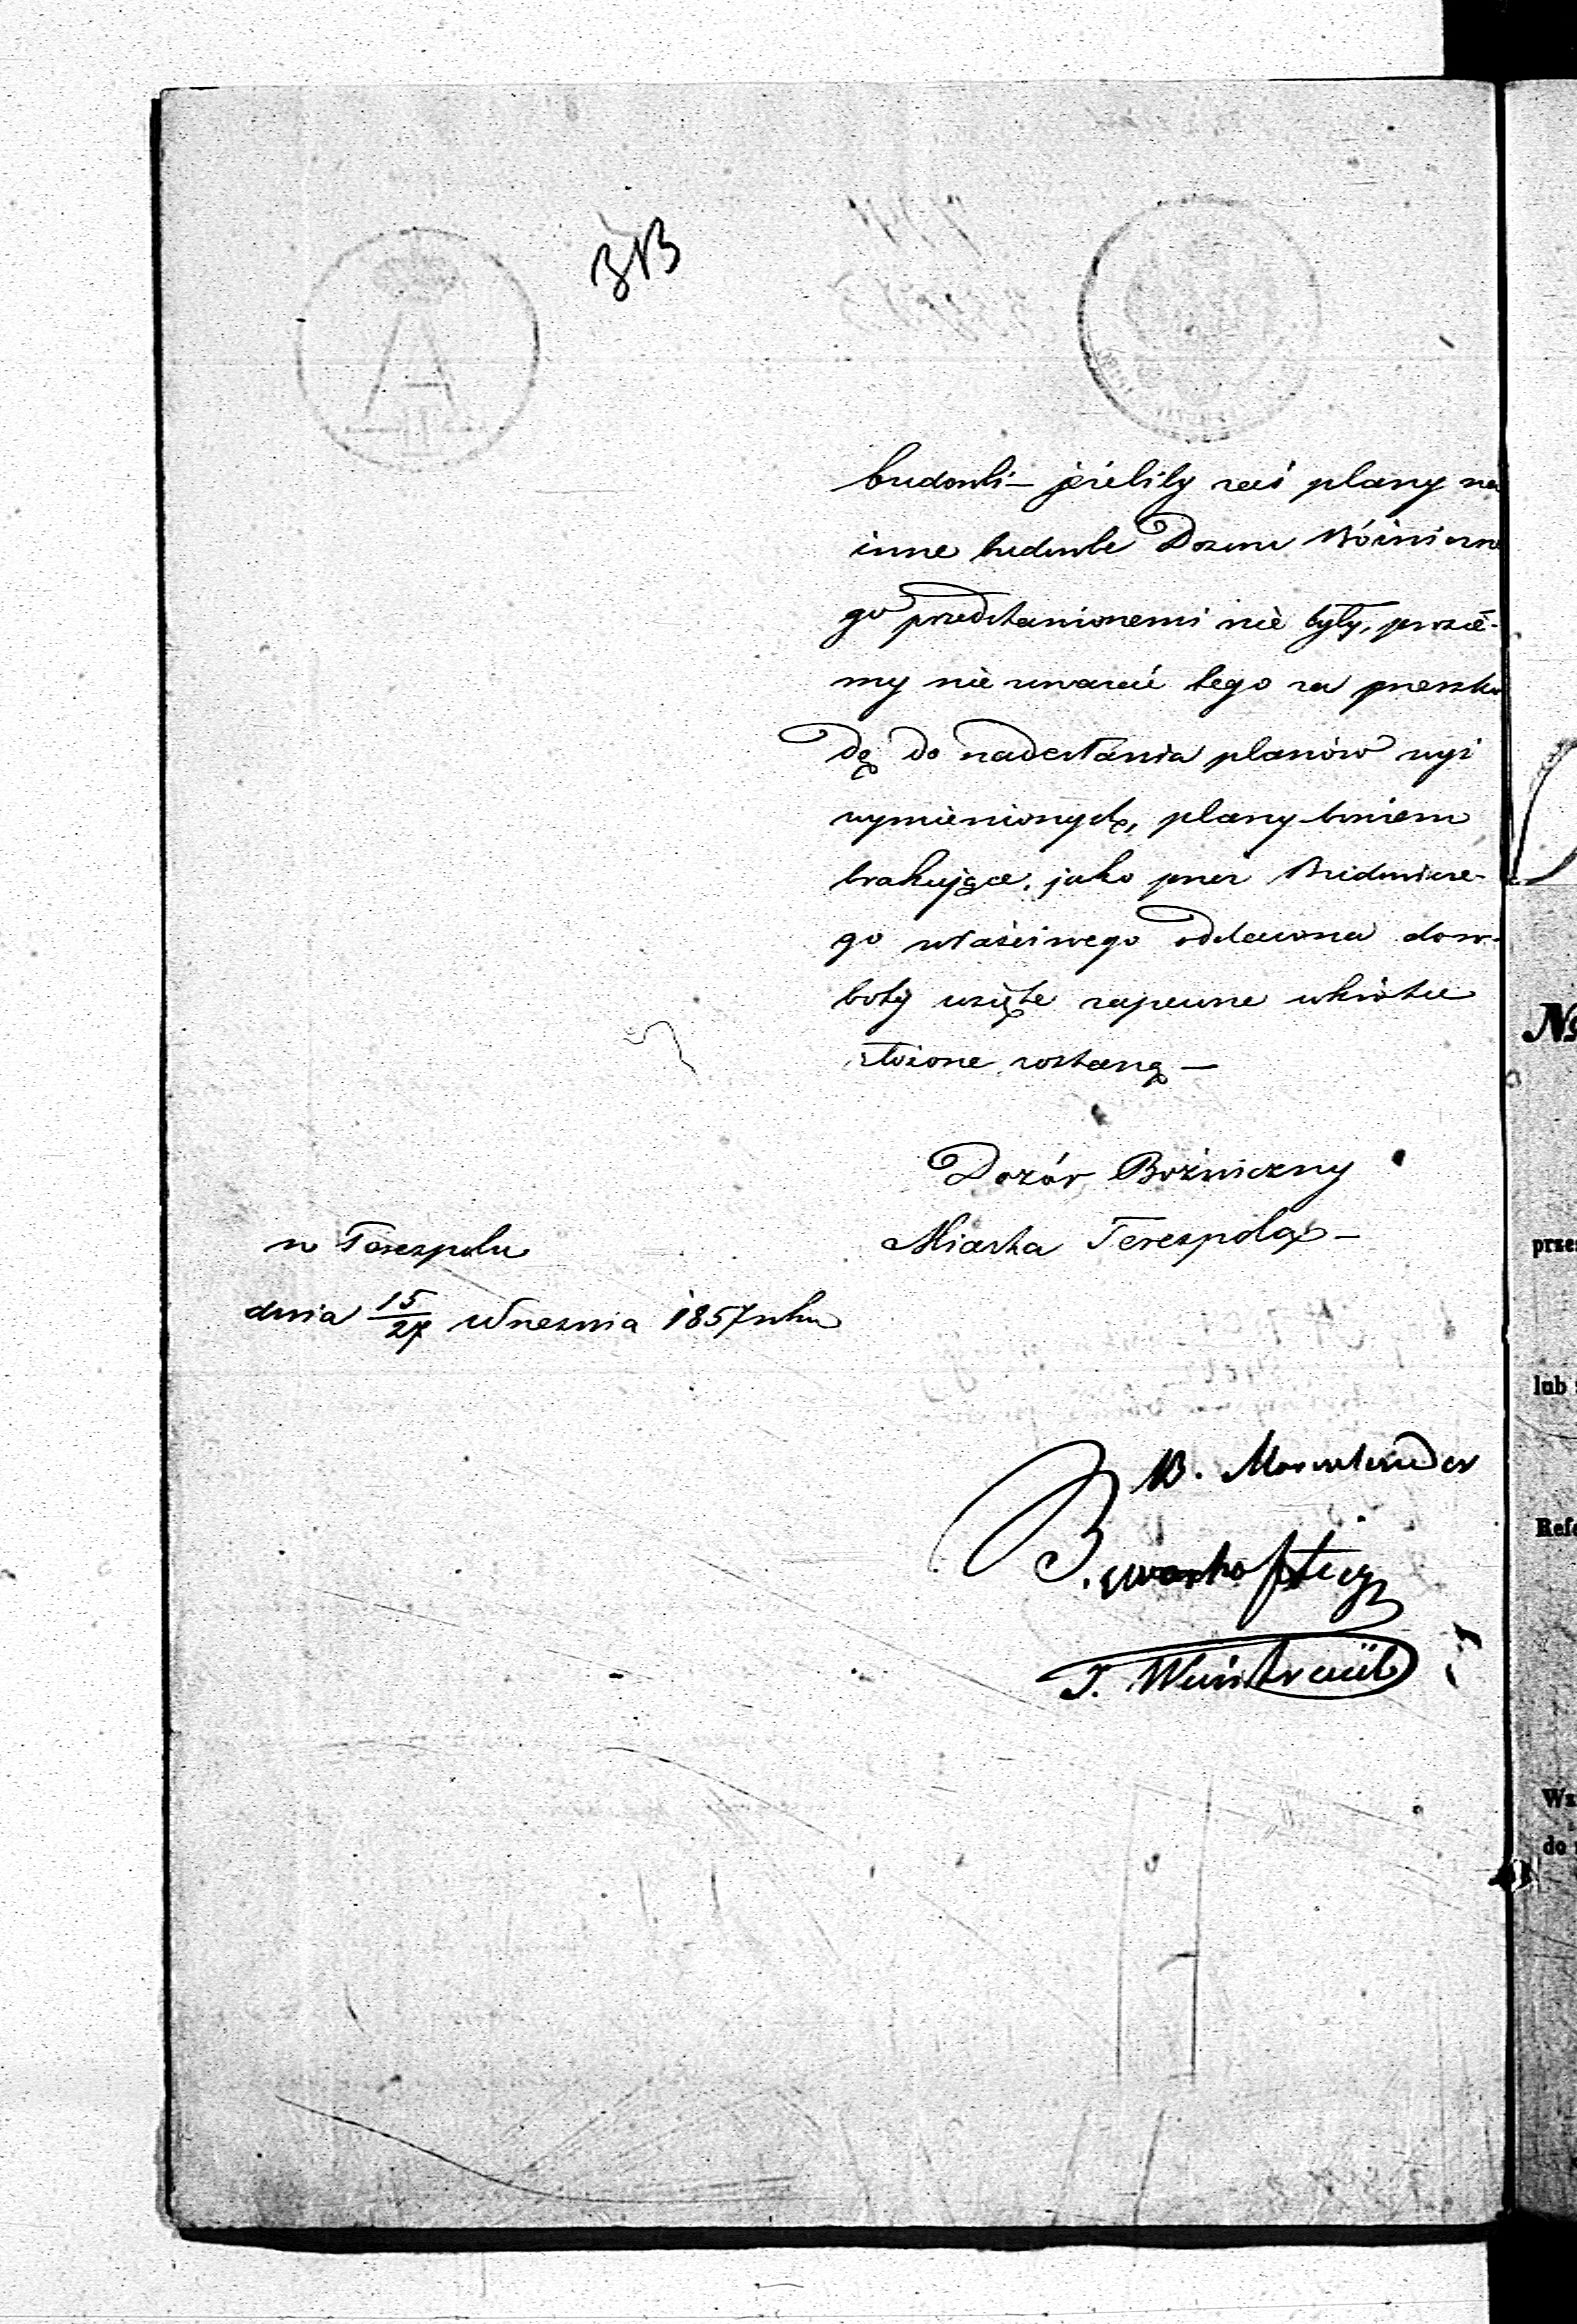 budowli – jeżeliby zaś plany na
inne budowle Dozoru Bóżniczne
go przedstawionemi nie były, prosie-
my nie uważać tego za przeszko
dę do nadesłania planów wyż
wymienionych, plany bowiem
brakujące, jako przez Budownicze-
go właściwego oddawna do ro-
boty wzięte zapewne wkrótce
złożone zostaną –
Dozór Bóżniczny
Miasta Terespola –
w Terespolu
dnia 15/27 Września 1857 roku
B.
J. Weintraub
No
prze
lub
Refe
Wz
do